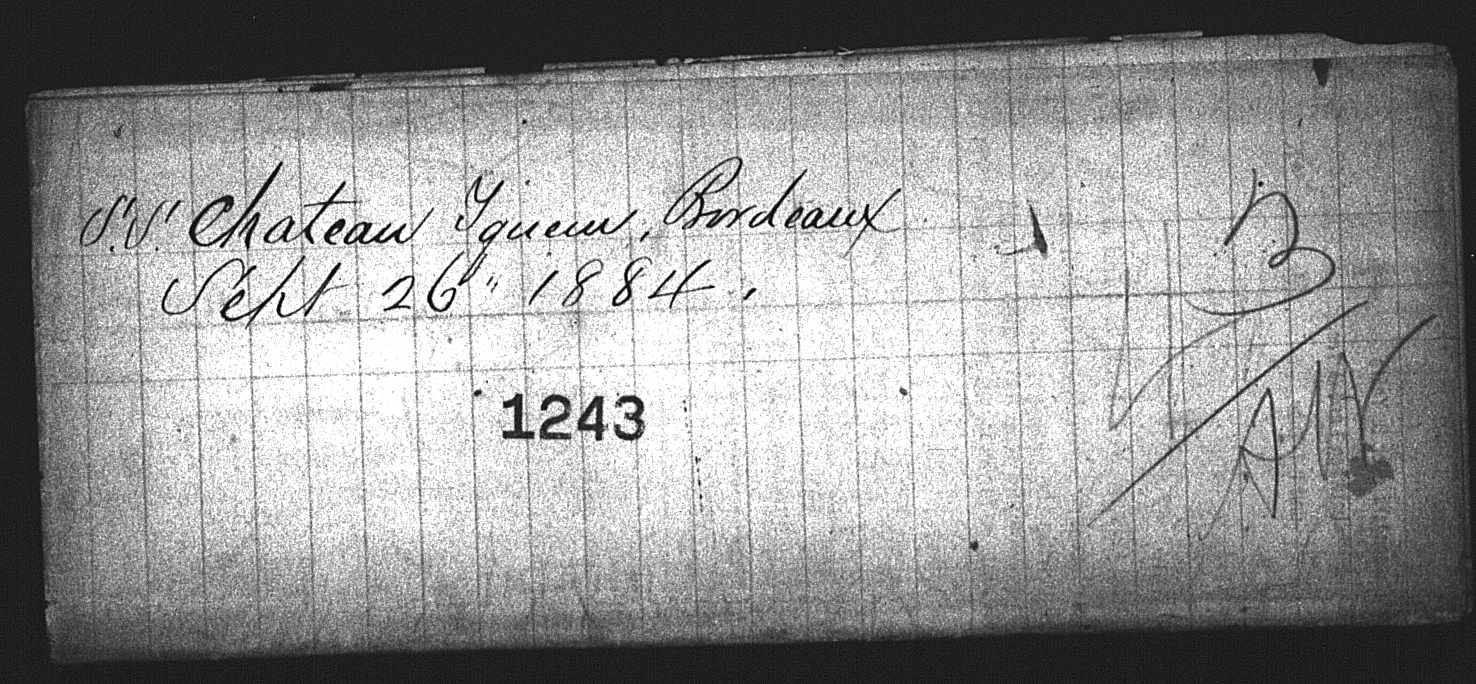 S.S. Chateau Yquem, Bordeaux
Sept 26" 1884.
1243
B